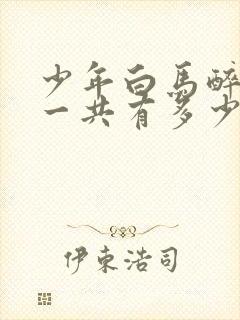 少年白馬醉
一共有多少
伊東浩司